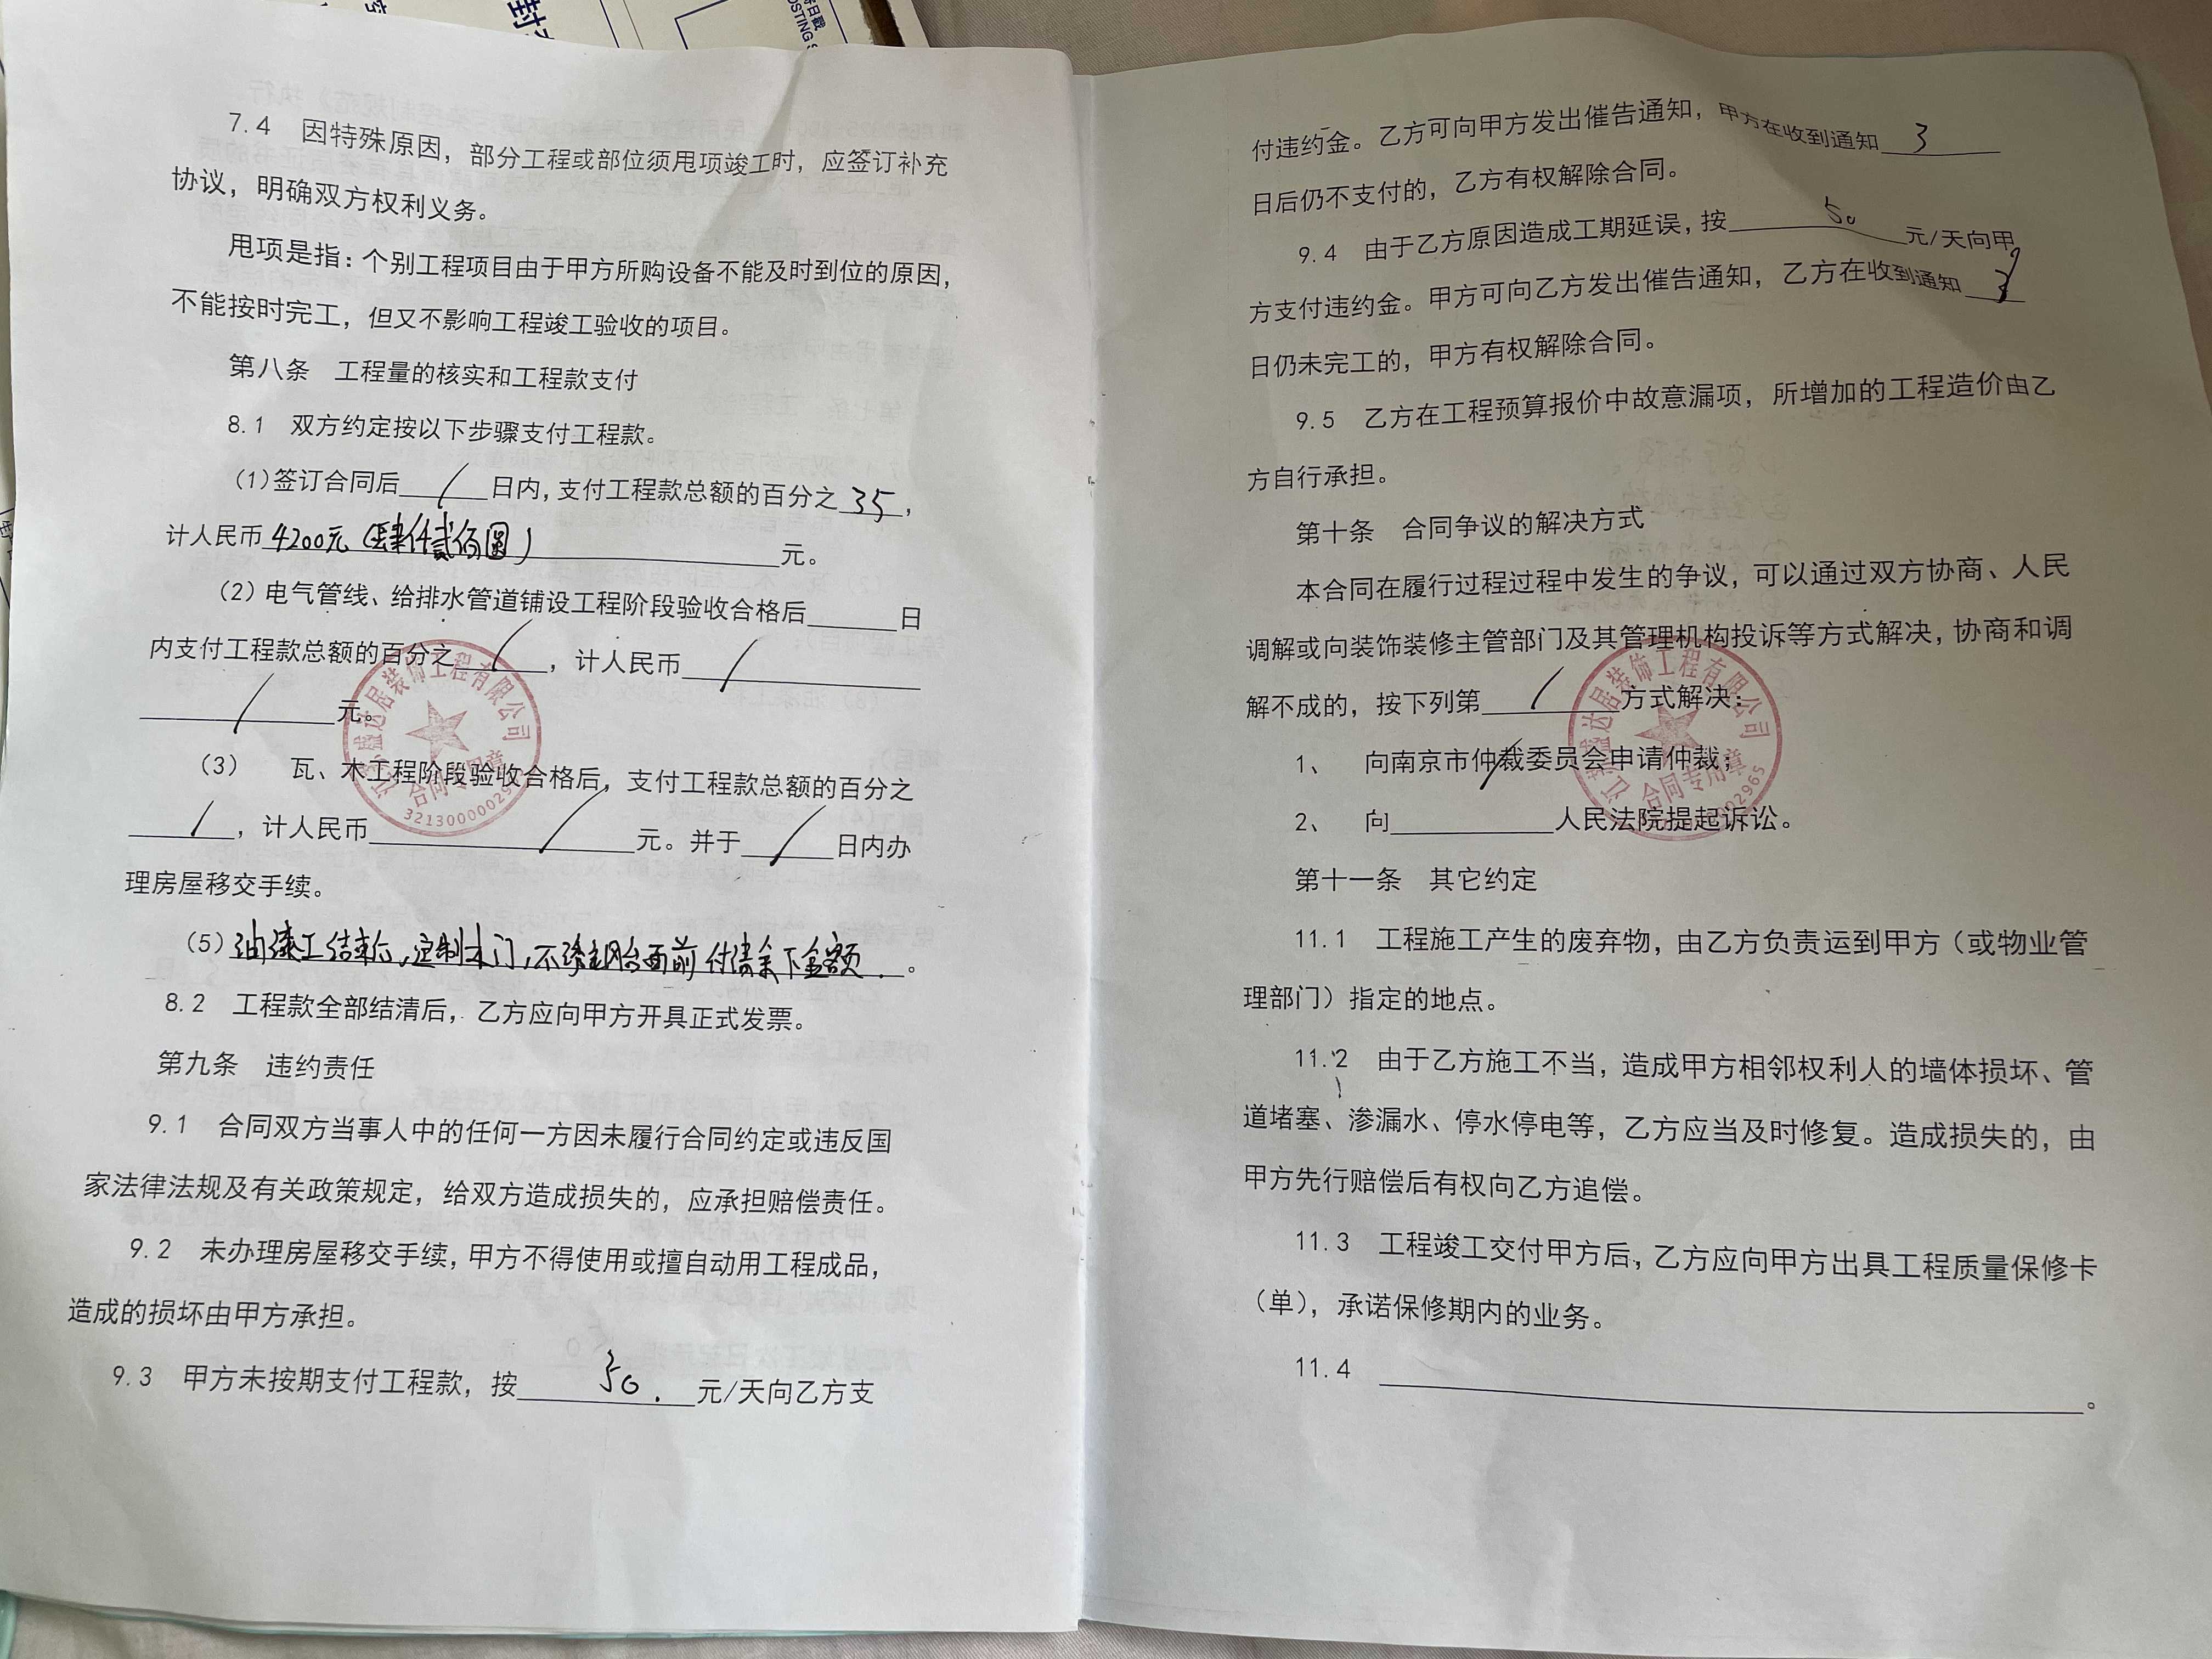 7.4 因特殊原因，部分工程或部位须甩项竣工时，应签订补充
协议，明确双方权利义务。
甩项是指：个别工程项目由于甲方所购设备不能及时到位的原因，
不能按时完工，但又不影响工程竣工验收的项目。
第八条 工程量的核实和工程款支付
8.1 双方约定按以下步骤支付工程款。
(1)签订合同后 / 日内，支付工程款总额的百分之 35，
计人民币 4200元（肆仟贰佰圆） 元。
(2)电气管线、给排水管道铺设工程阶段验收合格后______日
内支付工程款总额的百分之 / ，计人民币 /
/ 元。
(3) 瓦、木工程阶段验收合格后，支付工程款总额的百分之
/ ，计人民币 / 元。并于 / 日内办
理房屋移交手续。
(5)油漆工结束后，定制木门，不锈钢台面前付清余下金额。
8.2 工程款全部结清后，乙方应向甲方开具正式发票。
第九条 违约责任
9.1 合同双方当事人中的任何一方因未履行合同约定或违反国
家法律法规及有关政策规定，给双方造成损失的，应承担赔偿责任。
9.2 未办理房屋移交手续，甲方不得使用或擅自动用工程成品，
造成的损坏由甲方承担。
9.3 甲方未按期支付工程款，按 50. 元/天向乙方支
盛达居装饰工程有限公司
合同专用章
付违约金。乙方可向甲方发出催告通知，甲方在收到通知 3
日后仍不支付的，乙方有权解除合同。
9.4 由于乙方原因造成工期延误，按 50 元/天向甲
方支付违约金。甲方可向乙方发出催告通知，乙方在收到通知 3
日仍未完工的，甲方有权解除合同。
9.5 乙方在工程预算报价中故意漏项，所增加的工程造价由乙
方自行承担。
第十条 合同争议的解决方式
本合同在履行过程过程中发生的争议，可以通过双方协商、人民
调解或向装饰装修主管部门及其管理机构投诉等方式解决，协商和调
解不成的，按下列第 / 方式解决：
1、 向南京市仲裁委员会申请仲裁；
2、 向__________人民法院提起诉讼。
第十一条 其它约定
11.1 工程施工产生的废弃物，由乙方负责运到甲方（或物业管
理部门）指定的地点。
11.2 由于乙方施工不当，造成甲方相邻权利人的墙体损坏、管
道堵塞、渗漏水、停水停电等，乙方应当及时修复。造成损失的，由
甲方先行赔偿后有权向乙方追偿。
11.3 工程竣工交付甲方后，乙方应向甲方出具工程质量保修卡
（单），承诺保修期内的业务。
11.4 ____________________。
盛达居装饰工程有限公司
合同专用章